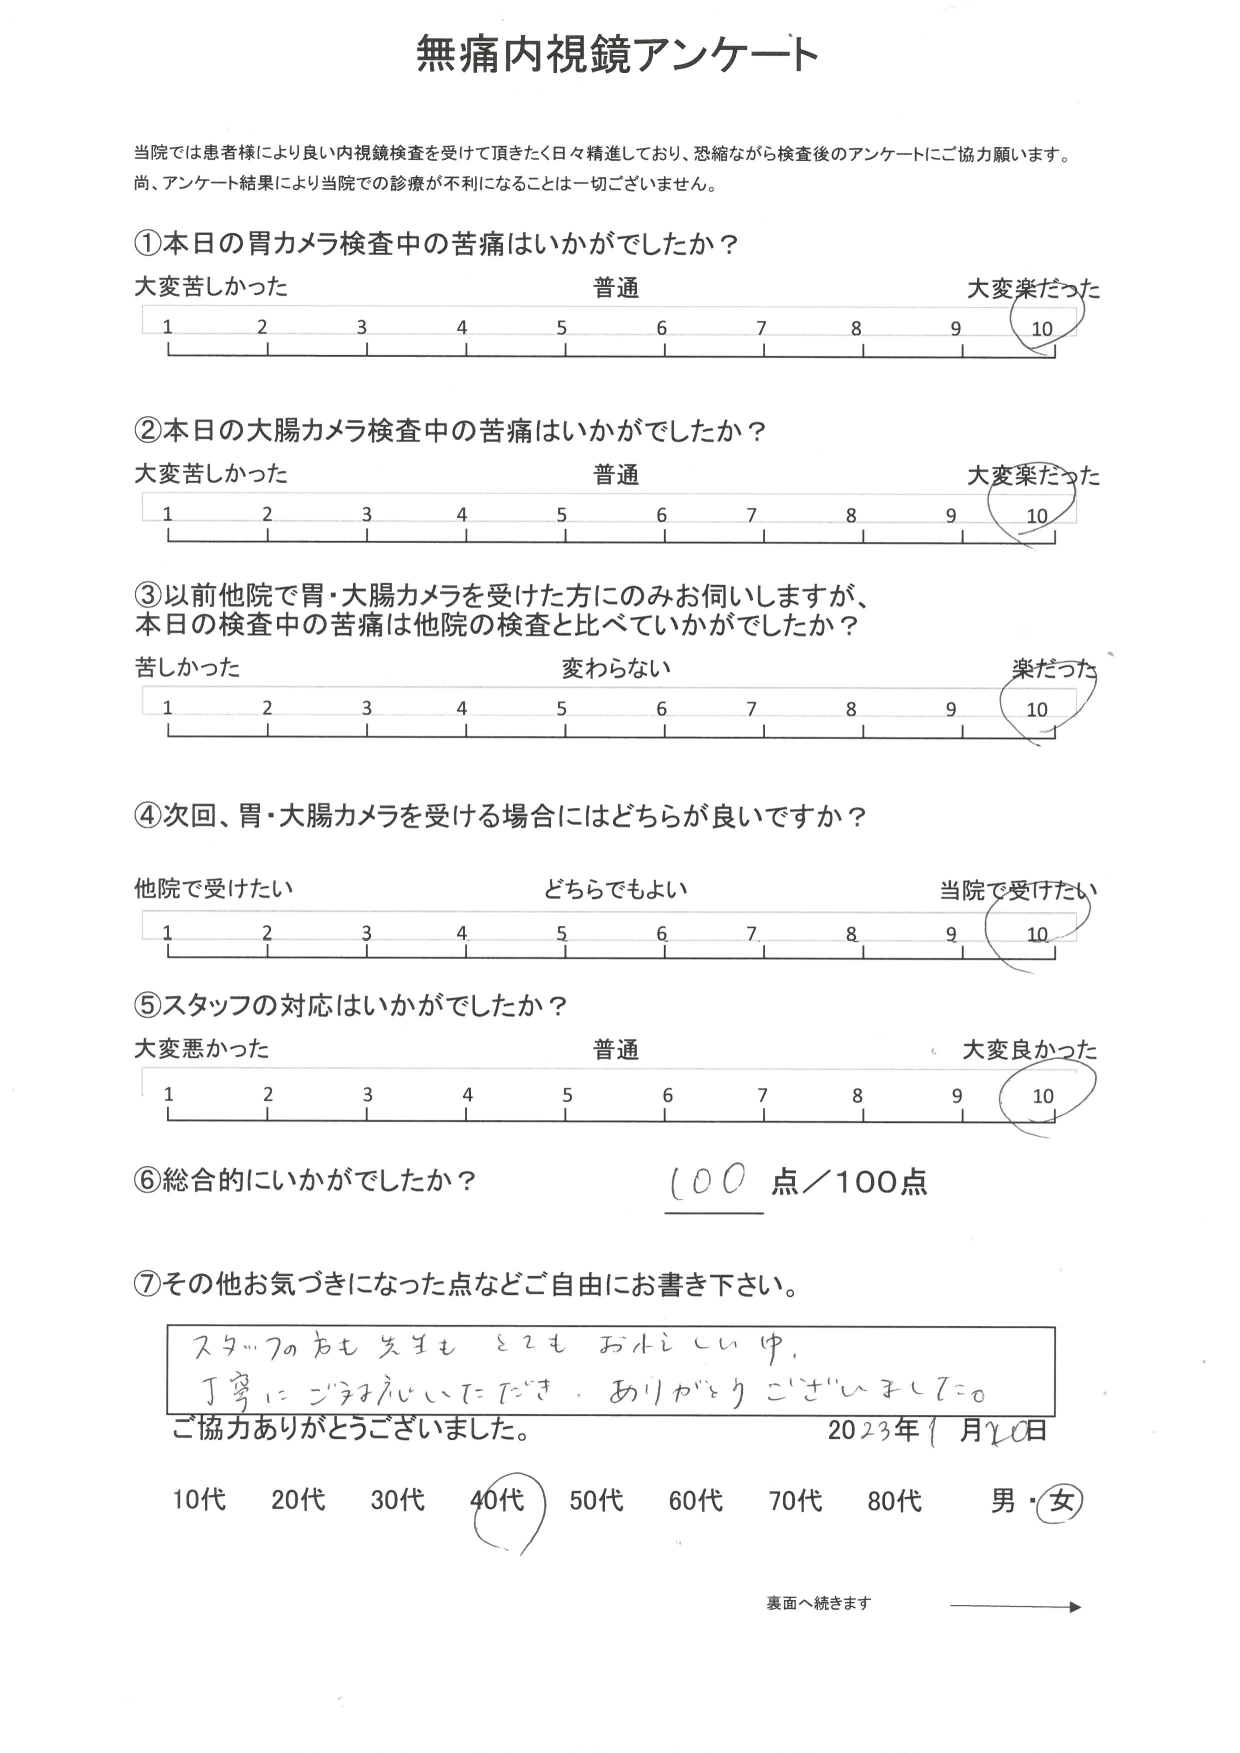 無痛内視鏡アンケート
当院では患者様により良い内視鏡検査を受けて頂きたく日々精進しており、恐縮ながら検査後のアンケートにご協力願います。
尚、アンケート結果により当院での診療が不利になることは一切ございません。
①本日の胃カメラ検査中の苦痛はいかがでしたか？
大変苦しかった 普通 大変楽だった
1 2 3 4 5 6 7 8 9 10
②本日の大腸カメラ検査中の苦痛はいかがでしたか？
大変苦しかった 普通 大変楽だった
1 2 3 4 5 6 7 8 9 10
③以前他院で胃・大腸カメラを受けた方にのみお伺いしますが、
本日の検査中の苦痛は他院の検査と比べていかがでしたか？
苦しかった 変わらない 楽だった
1 2 3 4 5 6 7 8 9 10
④次回、胃・大腸カメラを受ける場合にはどちらが良いですか？
他院で受けたい どちらでもよい 当院で受けたい
1 2 3 4 5 6 7 8 9 10
⑤スタッフの対応はいかがでしたか？
大変悪かった 普通 大変良かった
1 2 3 4 5 6 7 8 9 10
⑥総合的にいかがでしたか？ 100 点／100点
⑦その他お気づきになった点などご自由にお書き下さい。
スタッフの方も先生も とても お忙しい中、
丁寧に ご対応いただき、ありがとうございました。
ご協力ありがとうございました。 2023年1月20日
10代 20代 30代 40代 50代 60代 70代 80代 男・女
裏面へ続きます